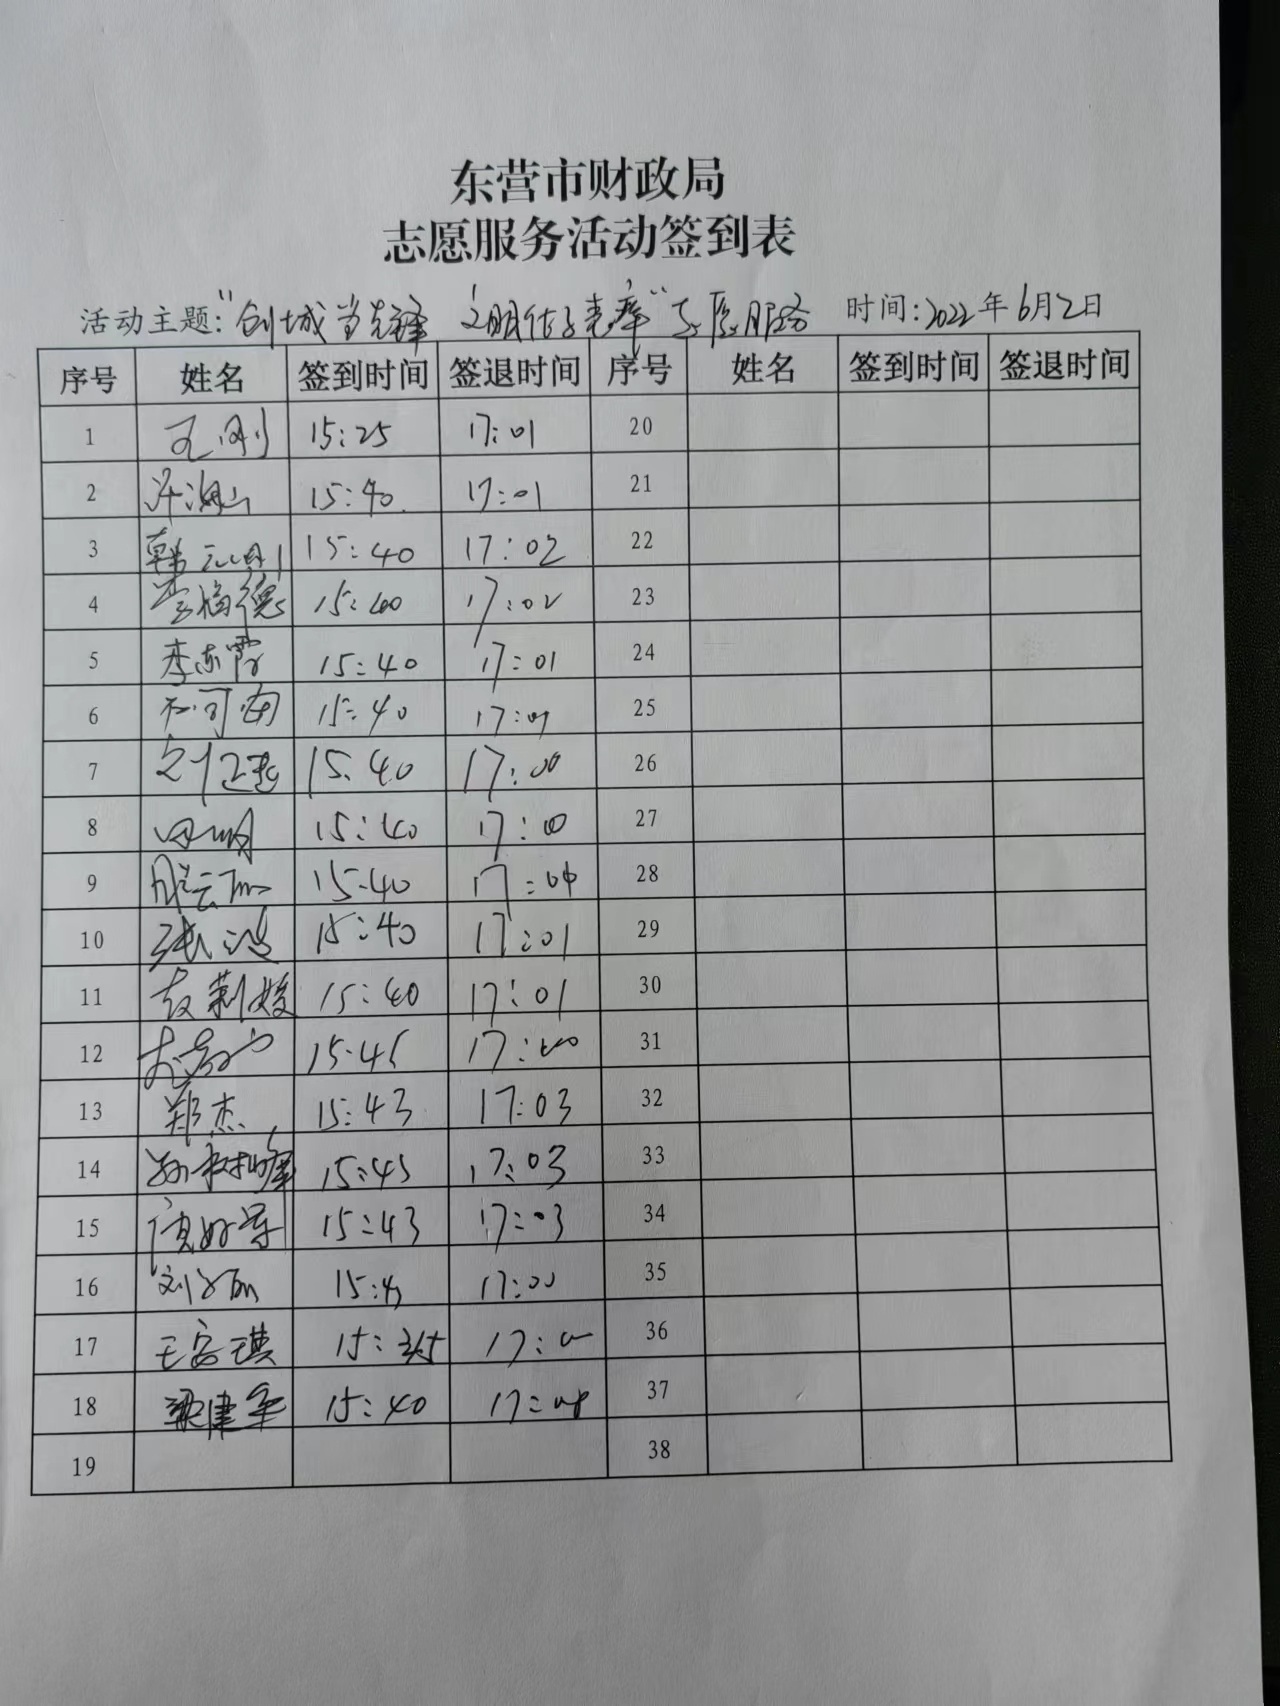 东营市财政局
志愿服务活动签到表
活动主题:“创城当先锋 文明作表率”志愿服务 时间:2022年6月2日
序号 姓名 签到时间 签退时间 序号 姓名 签到时间 签退时间
1 孔刚 15:25 17:01 20
2 许海山 15:40 17:01 21
3 韩 15:40 17:02 22
4 李福德 15:40 17:02 23
5 李东霞 15:40 17:01 24
6 15:40 17:01 25
7 15:40 17:00 26
8 田明 15:40 17:00 27
9 15:40 28
10 张 15:40 17:01 29
11 15:40 17:01 30
12 15:45 17:00 31
13 郑杰 15:43 17:03 32
14 孙树峰 15:43 17:03 33
15 15:43 17:03 34
16 刘 17:00 35
17 王容琪 36
18 梁建军 15:40 37
19 38